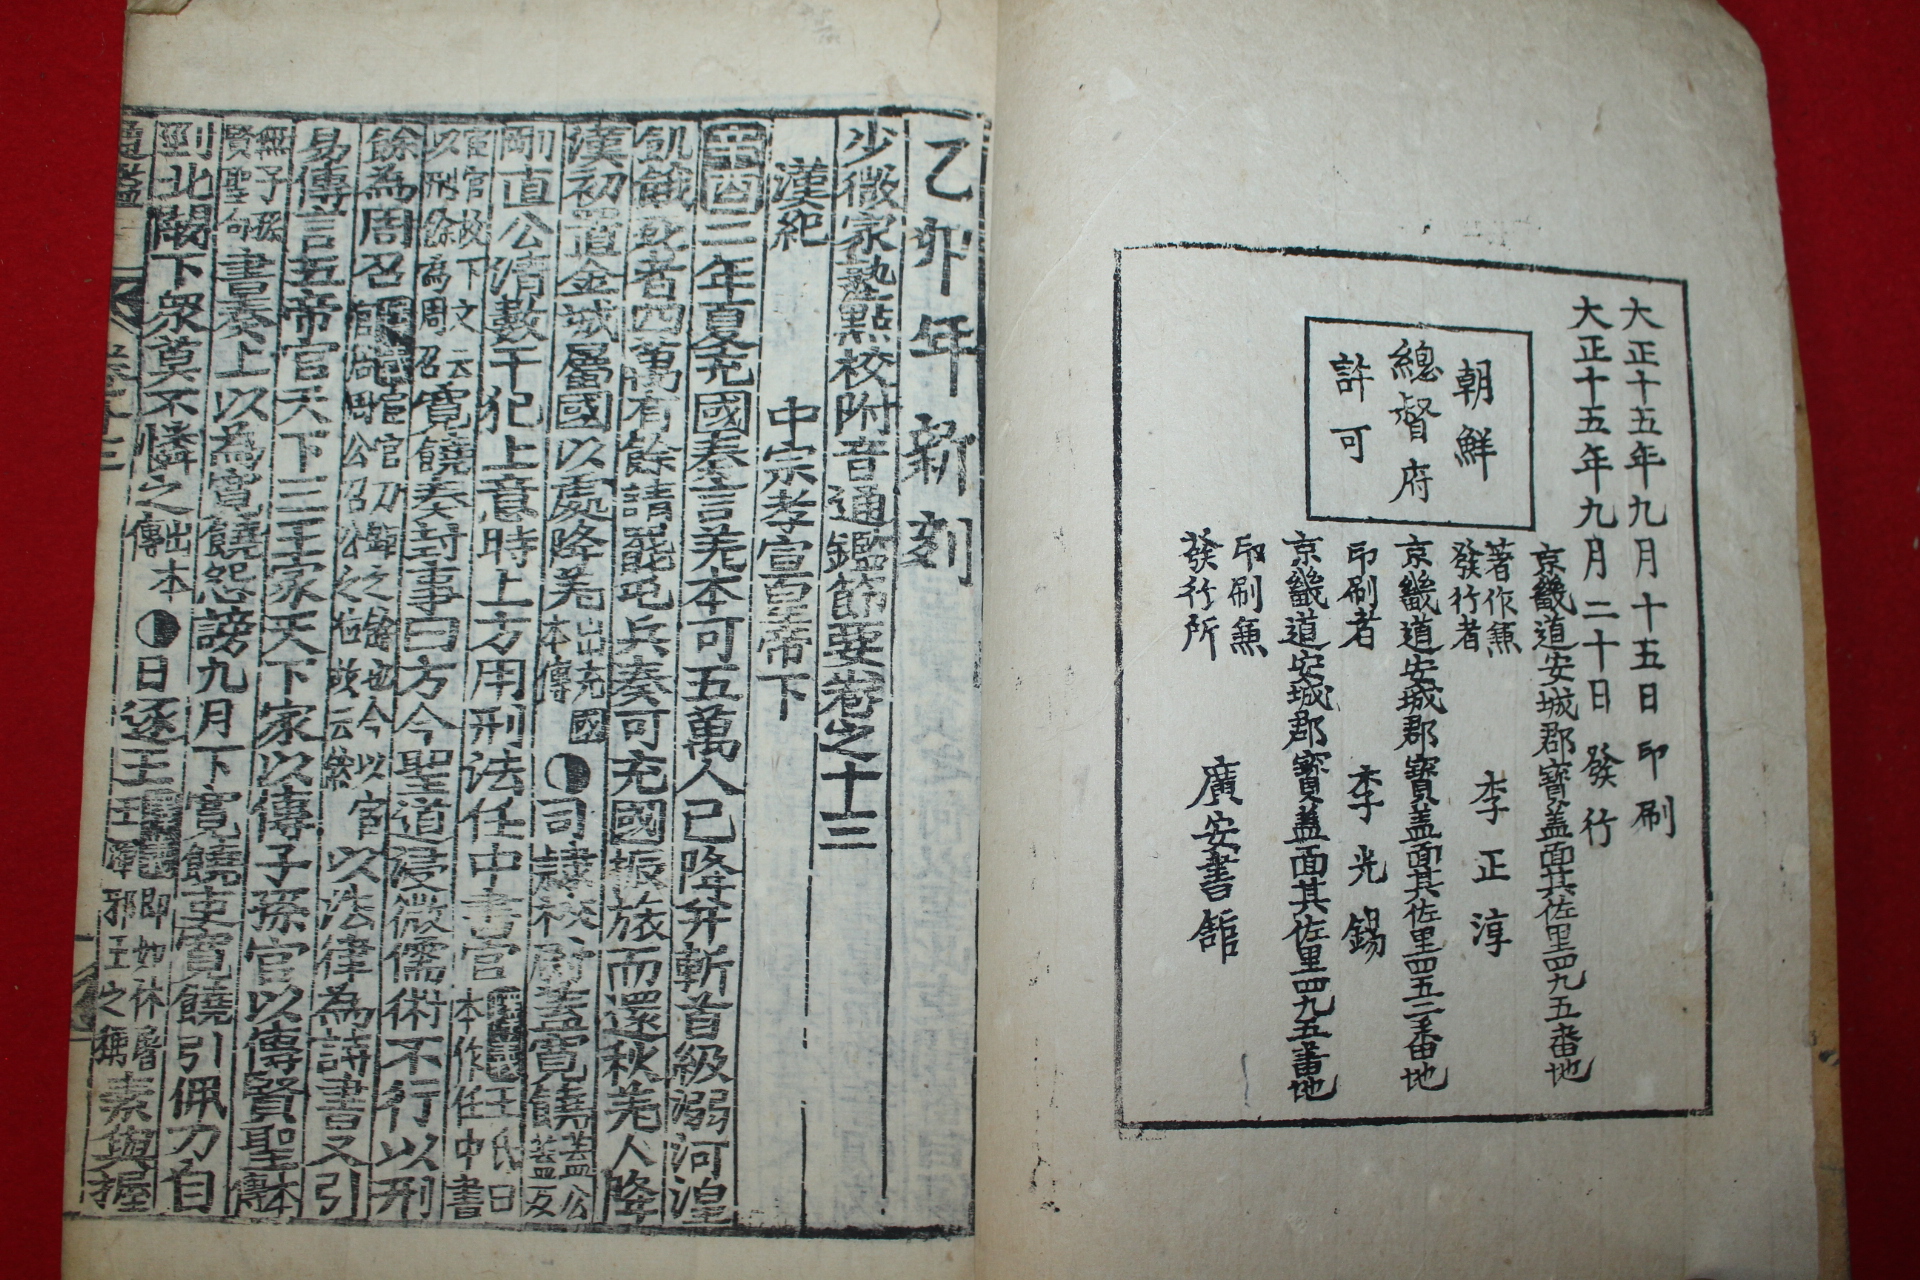 大正十五年九月十五日印刷
大正十五年九月二十日發行
朝鮮
總督府
許可
京畿道安城郡寶盖面其佐里四九五番地
著作兼
發行者 李正淳
京畿道安城郡寶盖面其佐里四五二番地
印刷者 李光錫
京畿道安城郡寶盖面其佐里四九五番地
印刷兼
發行所 廣安書館
乙卯年新刻
少微家塾點校附音通鑑節要卷之十三
漢紀 中宗孝宣皇帝下
酉二年夏充國奏言羌本可五萬人已降幷斬首級溺河湟
飢餓死者四萬有餘請罷屯兵奏可充國振旅而還秋羌人降
漢初置金城屬國以處降羌出充國本傳◐司隷校尉蓋寬饒
剛直公淸數干犯上意時上方用刑法任中書官
本作任中書
宦官故下文云
以刑餘爲周召
寬饒奏封事曰方今聖道浸微儒術不行以刑
餘爲周召
以法律爲詩書又引
易傳言五帝官天下三王家天下家以傳子孫官以傳賢聖
書奏上以爲寬饒怨謗九月下寬饒吏寬饒引佩刀自
剄北闕下衆莫不憐之出本傳◐日逐王
素與握